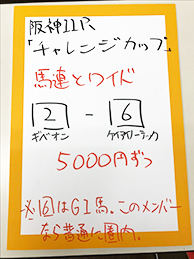 阪神11R
「チャレンジカップ」
馬連とワイド
2 - 6
ギベオン ケイアイノーテック
5000円ずつ
※6はGI馬。このメンバー
なら普通に圏内。